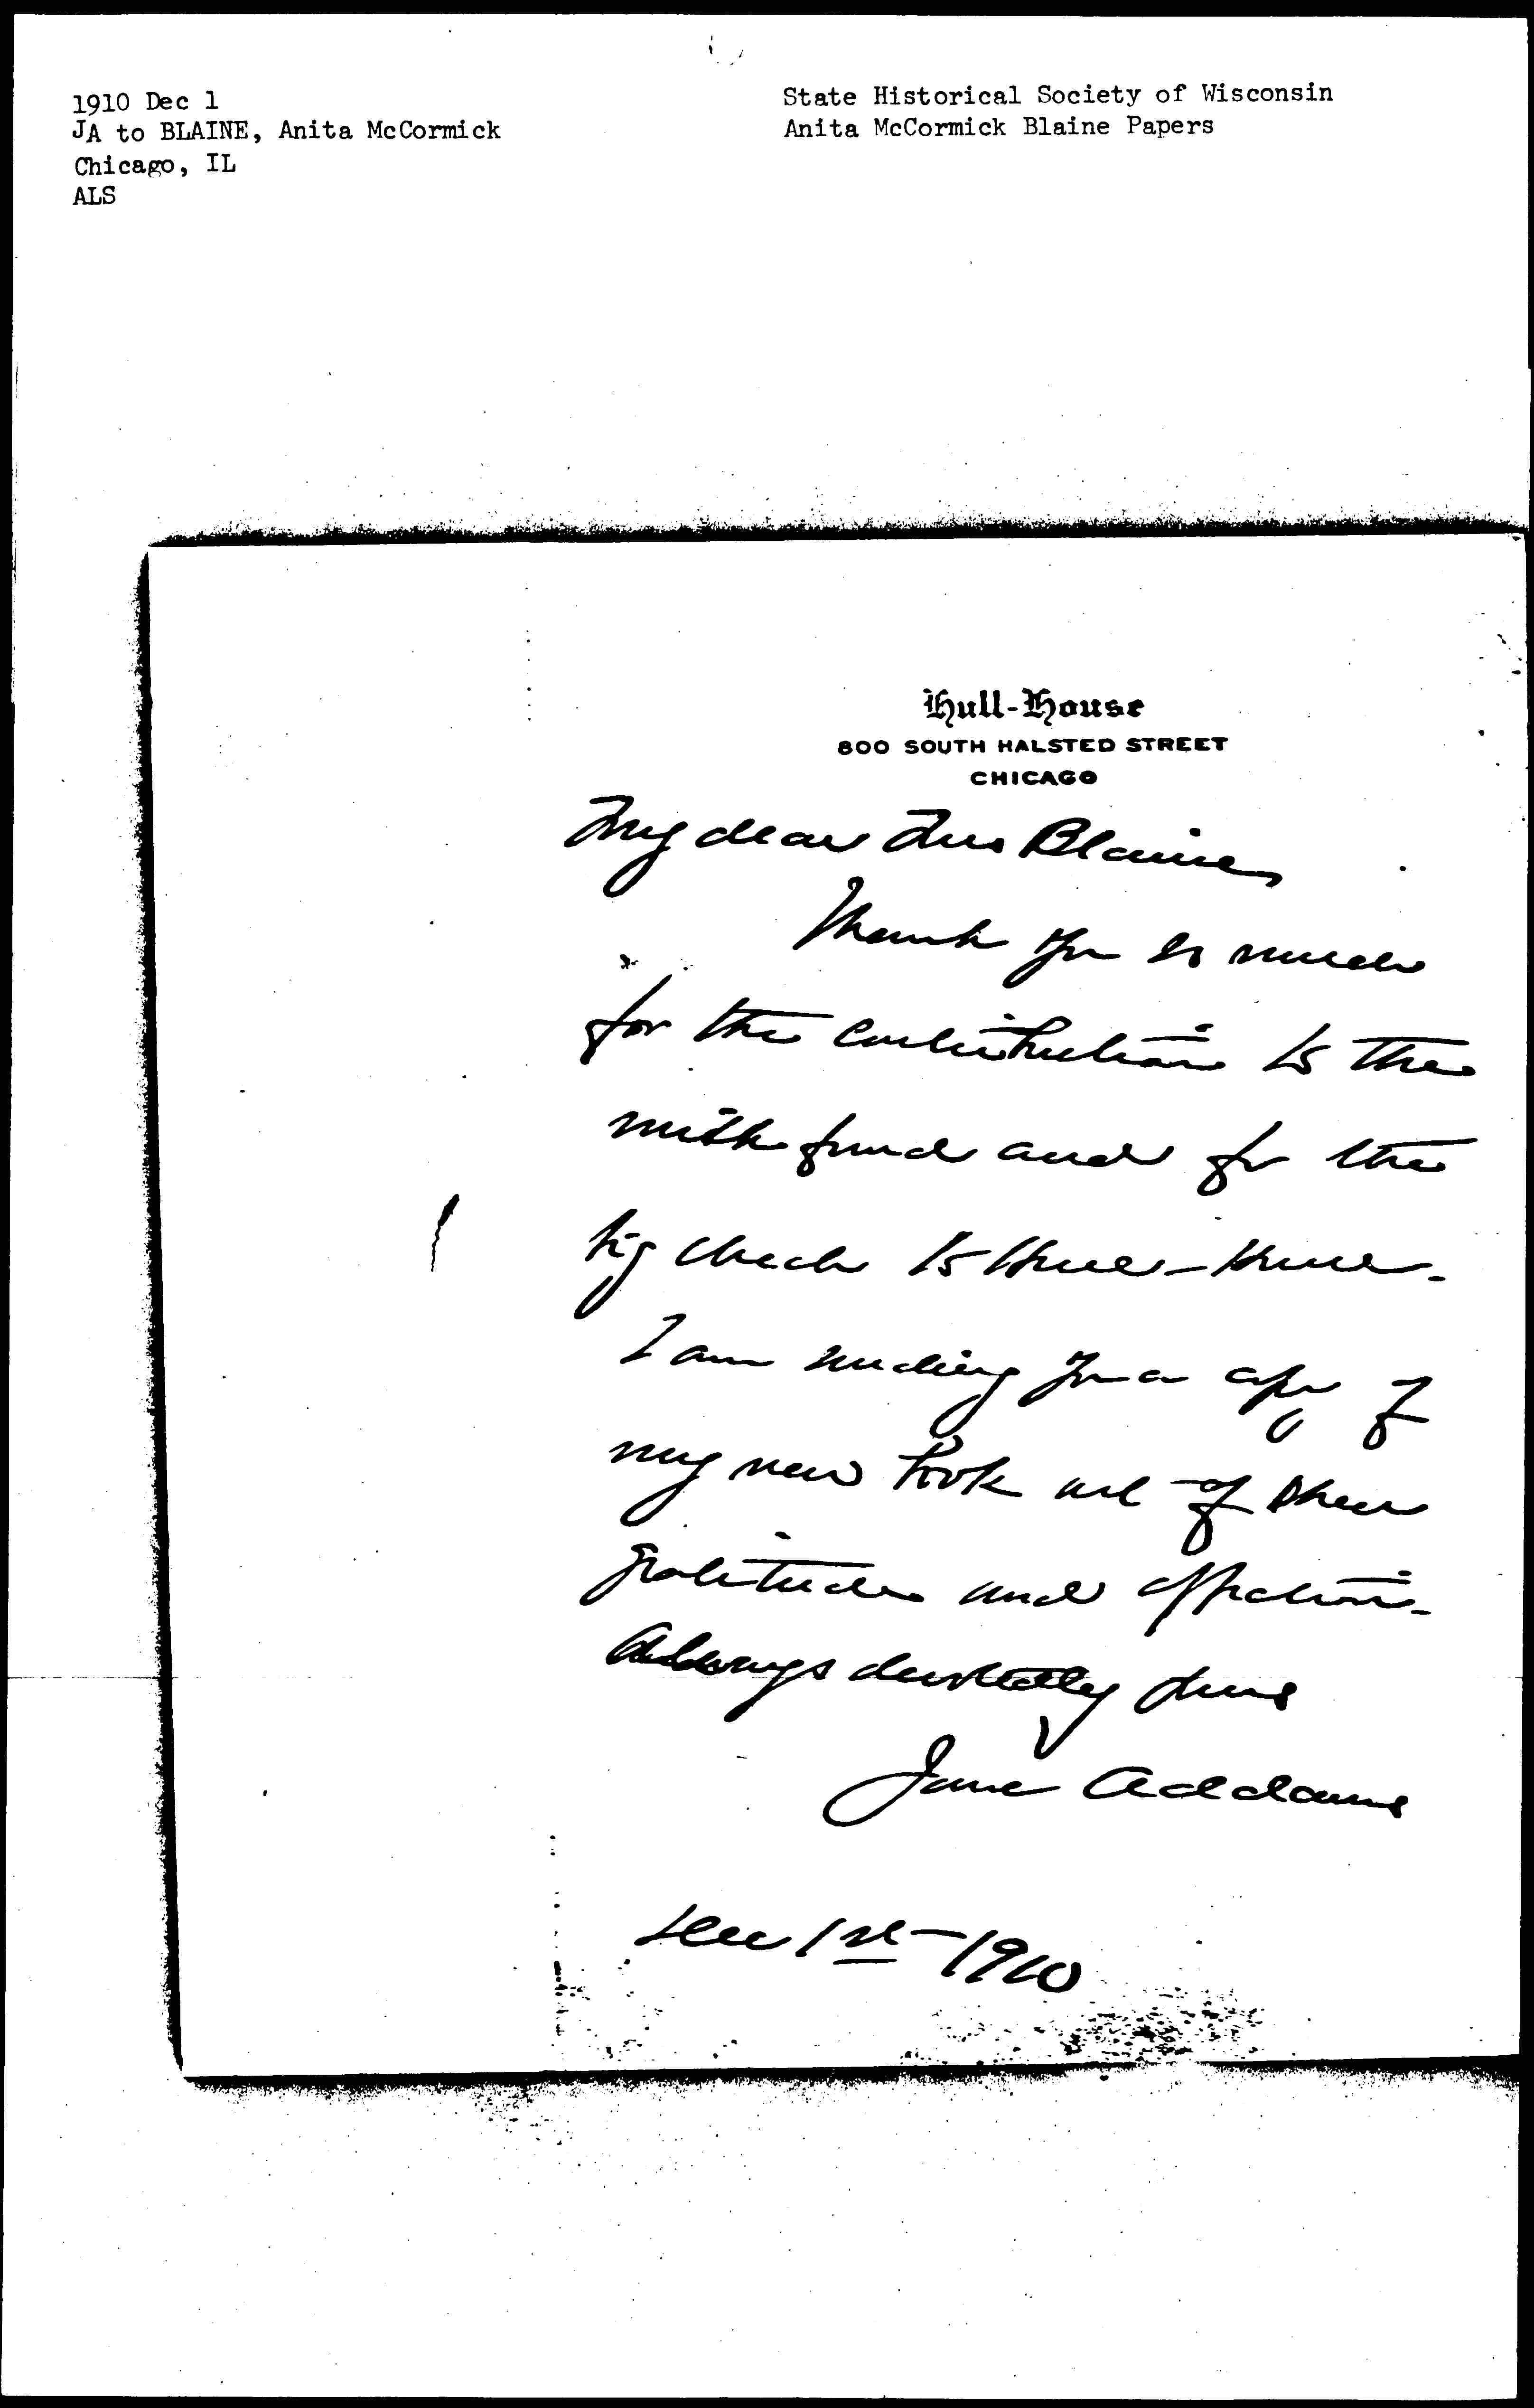 1910 Dec 1
JA to BLAINE, Anita McCormick
Chicago, IL
ALS
State Historical Society of Wisconsin
Anita McCormick Blaine Papers
Hull-House
800 SOUTH HALSTED STREET
CHICAGO
My dear Mrs Blaine
Thank you so much
for the contribution to the
milk fund and for the
big check to Hull-House.
I am sending you a copy of
my new book out of sheer
gratitude and affection.
Always devotedly yours
Jane Addams
Dec 1st - 1910